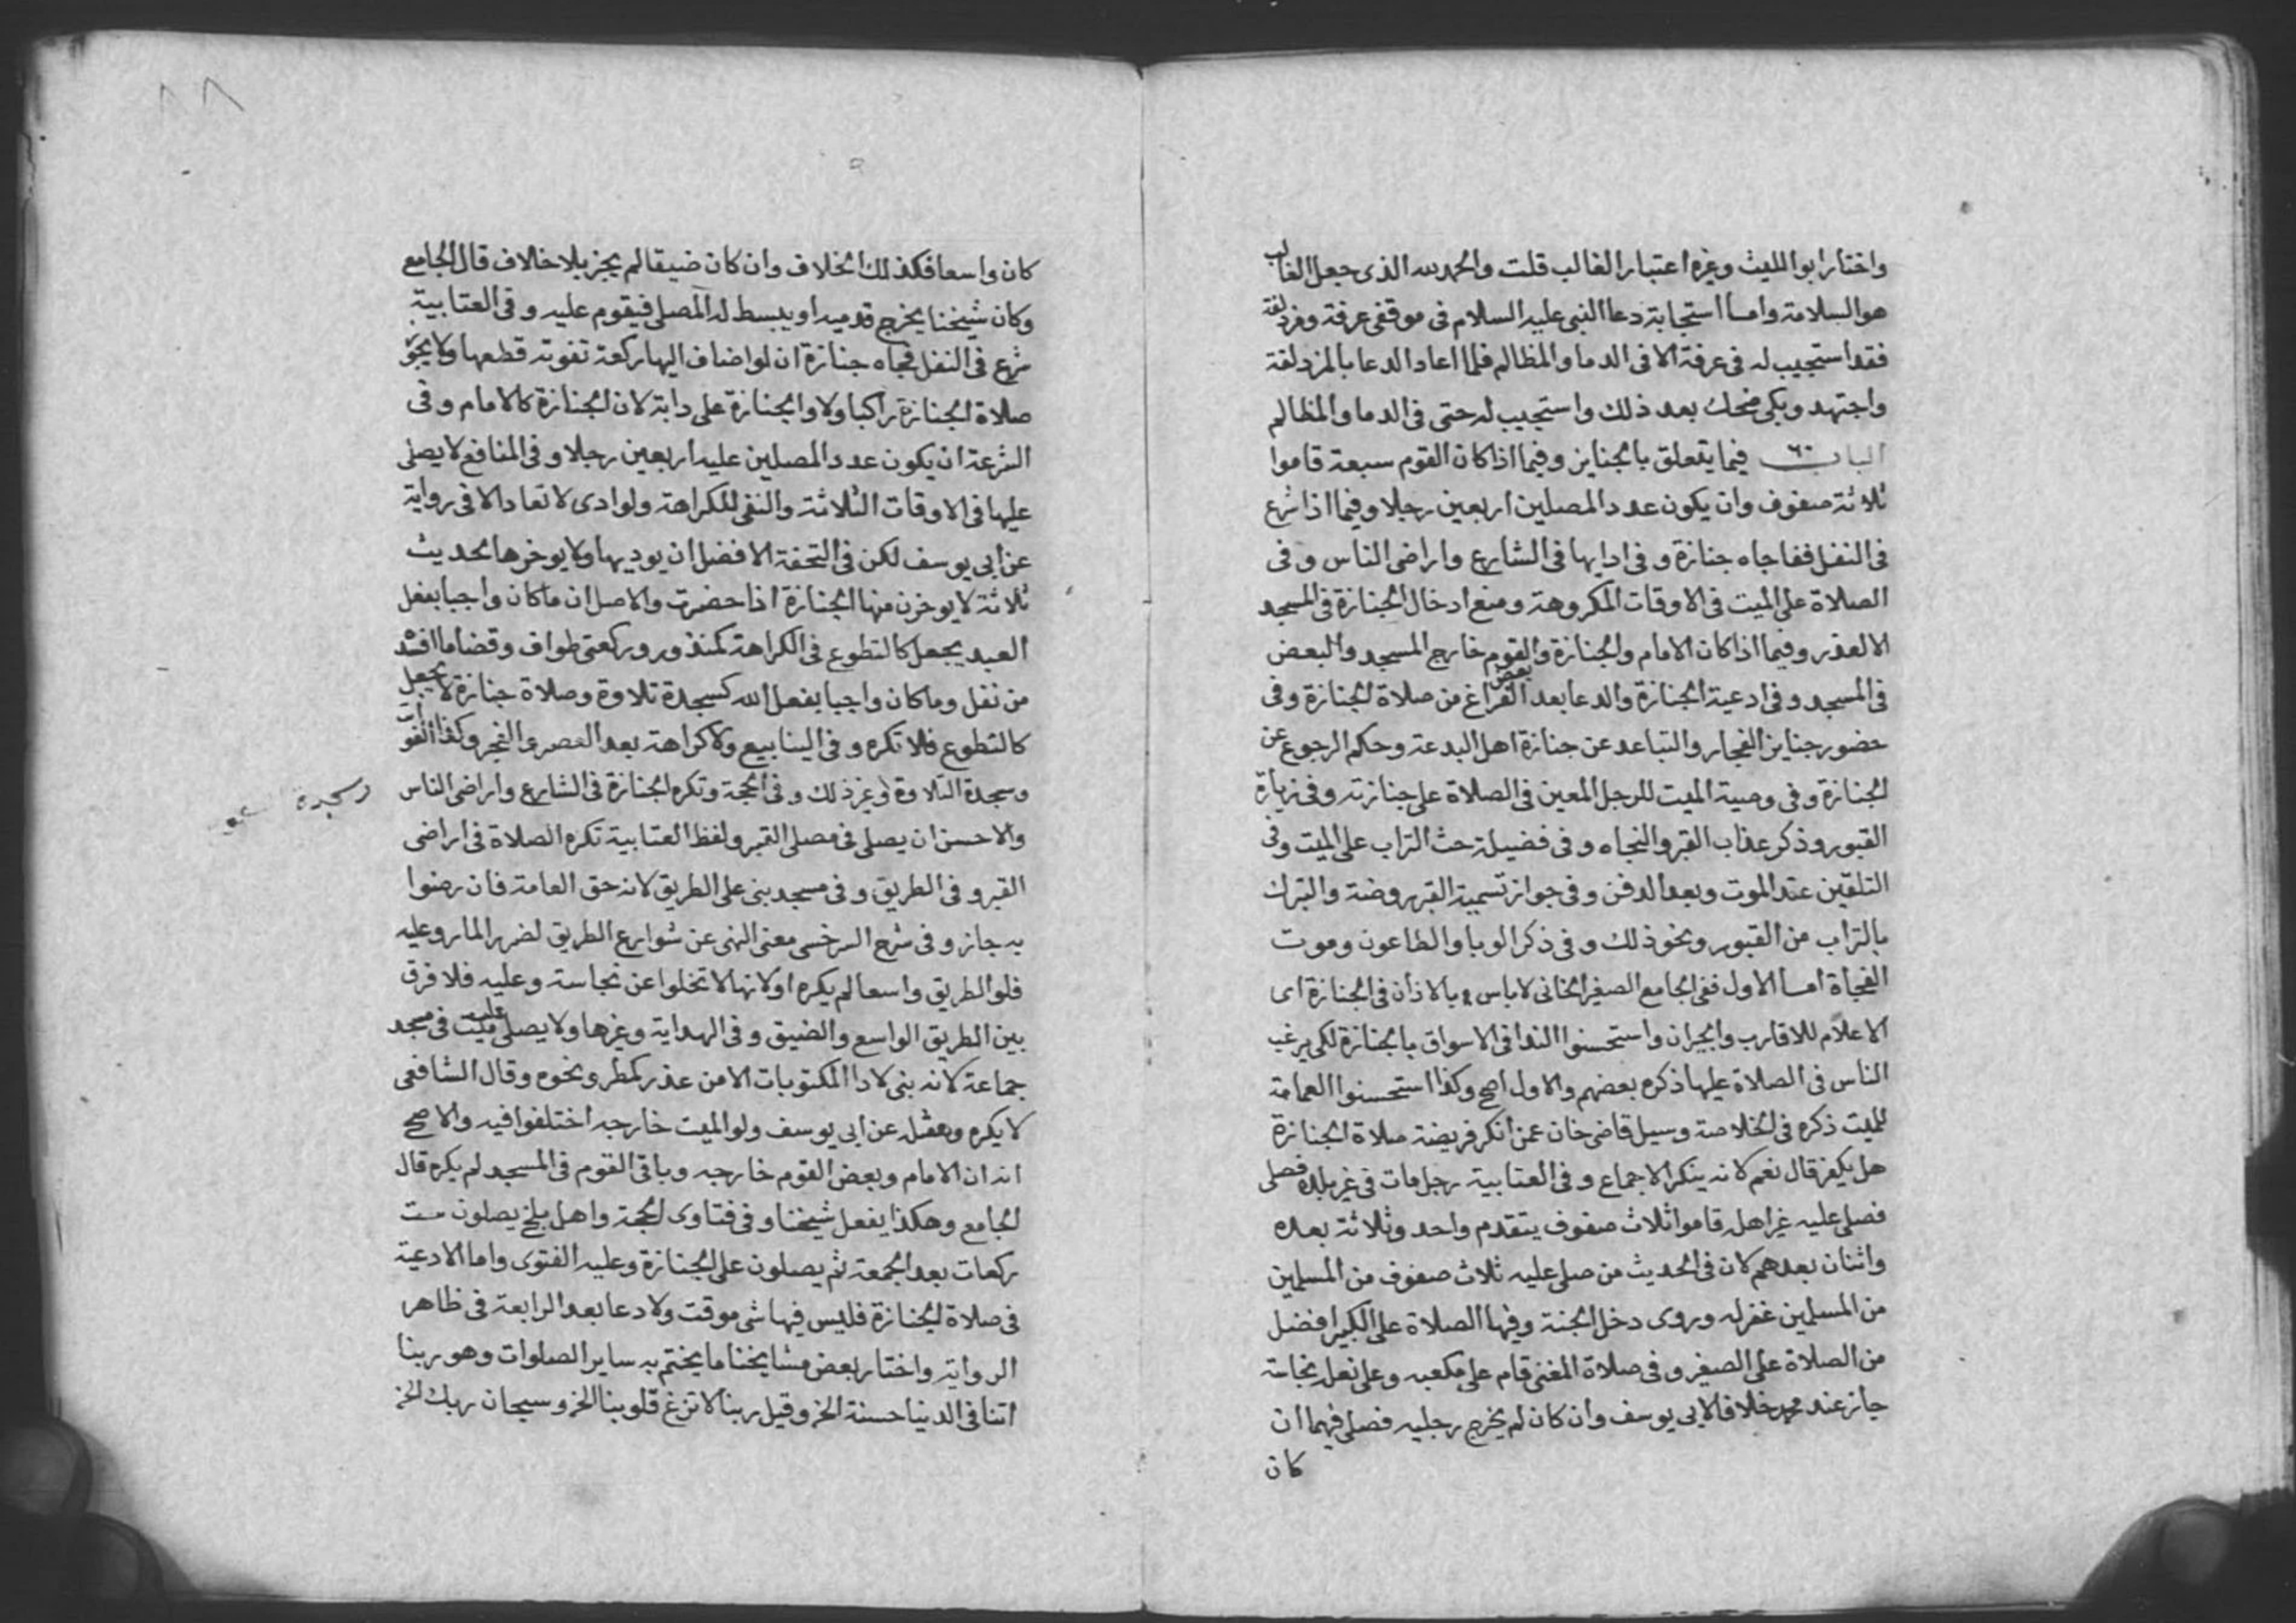 واختار ابو الليث وغيره اعتبار الغالب قلت والحمد لله الذى جعل الغالب
هو السلامة واما استجابة دعا النبى عليه السلام فى موقفى عرفة ومزدلفة
فقد استجيب له فى عرفة الا فى الدما والمظالم فلما اعاد الدعا بالمزدلفة
واجتهد وبكى ضحك بعد ذلك واستجيب له حتى فى الدما والمظالم
الباب ٦٠ فيما يتعلق بالجنايز وفيما اذا كان القوم سبعة قاموا
ثلاثة صفوف وان يكون عدد المصلين اربعين رجلا وفيما اذا شرع
فى النفل ففاجاه جنازة وفى ادايها فى الشارع واراضى الناس وفى
الصلاة على الميت فى الاوقات المكروهة ومنع ادخال الجنازة فى المسجد
الا لعذر وفيما اذا كان الامام والجنازة وبعض القوم خارج المسجد والبعض
فى المسجد وفى ادعية الجنازة والدعا بعد الفراغ من صلاة الجنازة وفى
حضور جنايز الفجار والتباعد عن جنازة اهل البدعة وحكم الرجوع عن
الجنازة وفى وصية الميت للرجل المعين فى الصلاة على جنازته وفى زيارة
القبور وذكر عذاب القبر والنجاه وفى فضيلة حث التراب على الميت وفى
التلقين عند الموت وبعد الدفن وفى جواز تسمية القبر روضة والتبرك
بالتراب من القبور ونحو ذلك وفى ذكر الوبا والطاعون وموت
الفجاة اما الاول ففى الجامع الصغير الخانى لا باس بالاذان فى الجنازة اى
الاعلام للاقارب والجيران واستحسنوا الندا فى الاسواق بالجنازة لكى يرغب
الناس فى الصلاة عليها ذكره بعضهم والاول اصح وكذا استحسنوا العمامة
للميت ذكره فى الخلاصة وسيل قاضى خان عمن انكر فريضة صلاة الجنازة
هل يكفر قال نعم لانه ينكر الاجماع وفى العتابية رجل مات فى غير بلده فصلى
فصلى عليه غير اهله قاموا ثلاث صفوف يتقدم واحد وثلاثة بعده
واثنان بعدهم لان فى الحديث من صلى عليه ثلاث صفوف من المسلمين
من المسلمين غفر له وروى دخل الجنة وفيها الصلاة على الكبير افضل
من الصلاة على الصغير وفى صلاة المغنى قام على مكعبه وعلى نعله نجاسة
جاز عند محمد خلافا لابى يوسف وان كان لم يخرج رجليه فصلى فيهما ان
كان
كان واسعا فكذلك الخلاف وان كان ضيقا لم يجز بلا خلاف قال الجامع
وكان شيخنا يخرج قدميه او يبسط له المصلى فيقوم عليه وفى العتابية
شرع فى النفل فجاه جنازة ان لو اضاف اليها ركعة تفوته قطعها ولا يجوز
صلاة الجنازة راكبا ولا والجنازة على دابة لان الجنازة كالامام وفى
الشرعة ان يكون عدد المصلين عليه اربعين رجلا وفى المنافع لا يصلى
عليها فى الاوقات الثلاثة والنفى للكراهة ولو ادى لا تعاد الا فى رواية
عن ابى يوسف لكن فى التحفة الافضل ان يوديها ولا يوخرها لحديث
ثلاثة لا يوخرن منها الجنازة اذا حضرت والاصل ان ما كان واجبا بفعل
العبد يجعل كالتطوع فى الكراهة كمنذور وركعتى طواف وقضا ما افسد
من نفل وما كان واجبا بفعل الله كسجدة تلاوة وصلاة جنازة لا يجعل
كالتطوع فلا تكره وفى الينابيع ولا كراهة بعد العصر والفجر وكذا الفوايت
وسجدة التلاوة وغير ذلك وفى الحجة وتكره الجنازة فى الشارع واراضى الناس
وسجدة
والاحسن ان يصلى فى مصلى القبر ولفظ العتابية تكره الصلاة فى اراضى
القبر وفى الطريق وفى مسجد بنى على الطريق لانه حق العامة فان رضوا
به جاز وفى شرح السرخسى معنى النهى عن شوارع الطريق لضرر المار وعليه
فلو الطريق واسعا لم يكره او لانها لا تخلوا عن نجاسة وعليه فلا فرق
بين الطريق الواسع والضيق وفى الهداية وغيرها ولا يصلى على ميت فى مسجد
جماعة لانه بنى لادا المكتوبات الا من عذر كمطر ونحوه وقال الشافعى
لا يكره ومثله عن ابى يوسف ولو الميت خارجه اختلفوا فيه والاصح
انه ان الامام وبعض القوم خارجه وباقى القوم فى المسجد لم يكره قال
الجامع وهكذا يفعل شيخنا وفى فتاوى الحجة واهل بلخ يصلون ست
ركعات بعد الجمعة ثم يصلون على الجنازة وعليه الفتوى واما الادعية
فى صلاة الجنازة فليس فيها شى موقت ولا دعا بعد الرابعة فى ظاهر
الرواية واختار بعض مشايخنا ما يختم به ساير الصلوات وهو ربنا
اتنا فى الدنيا حسنة الخ وقيل ربنا لا تزغ قلوبنا الخ وسبحان ربك الخ